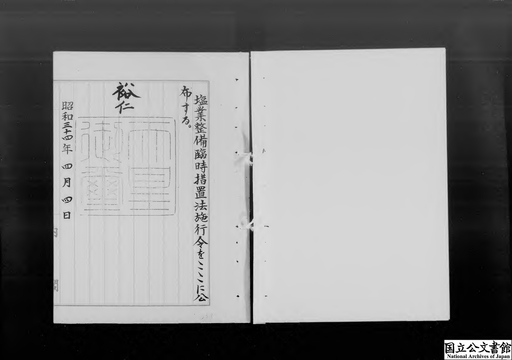 塩業整備臨時措置法施行令をここに公
布する。
裕仁
天皇
御璽
昭和三十四年四月四日
国立公文書館
National Archives of Japan